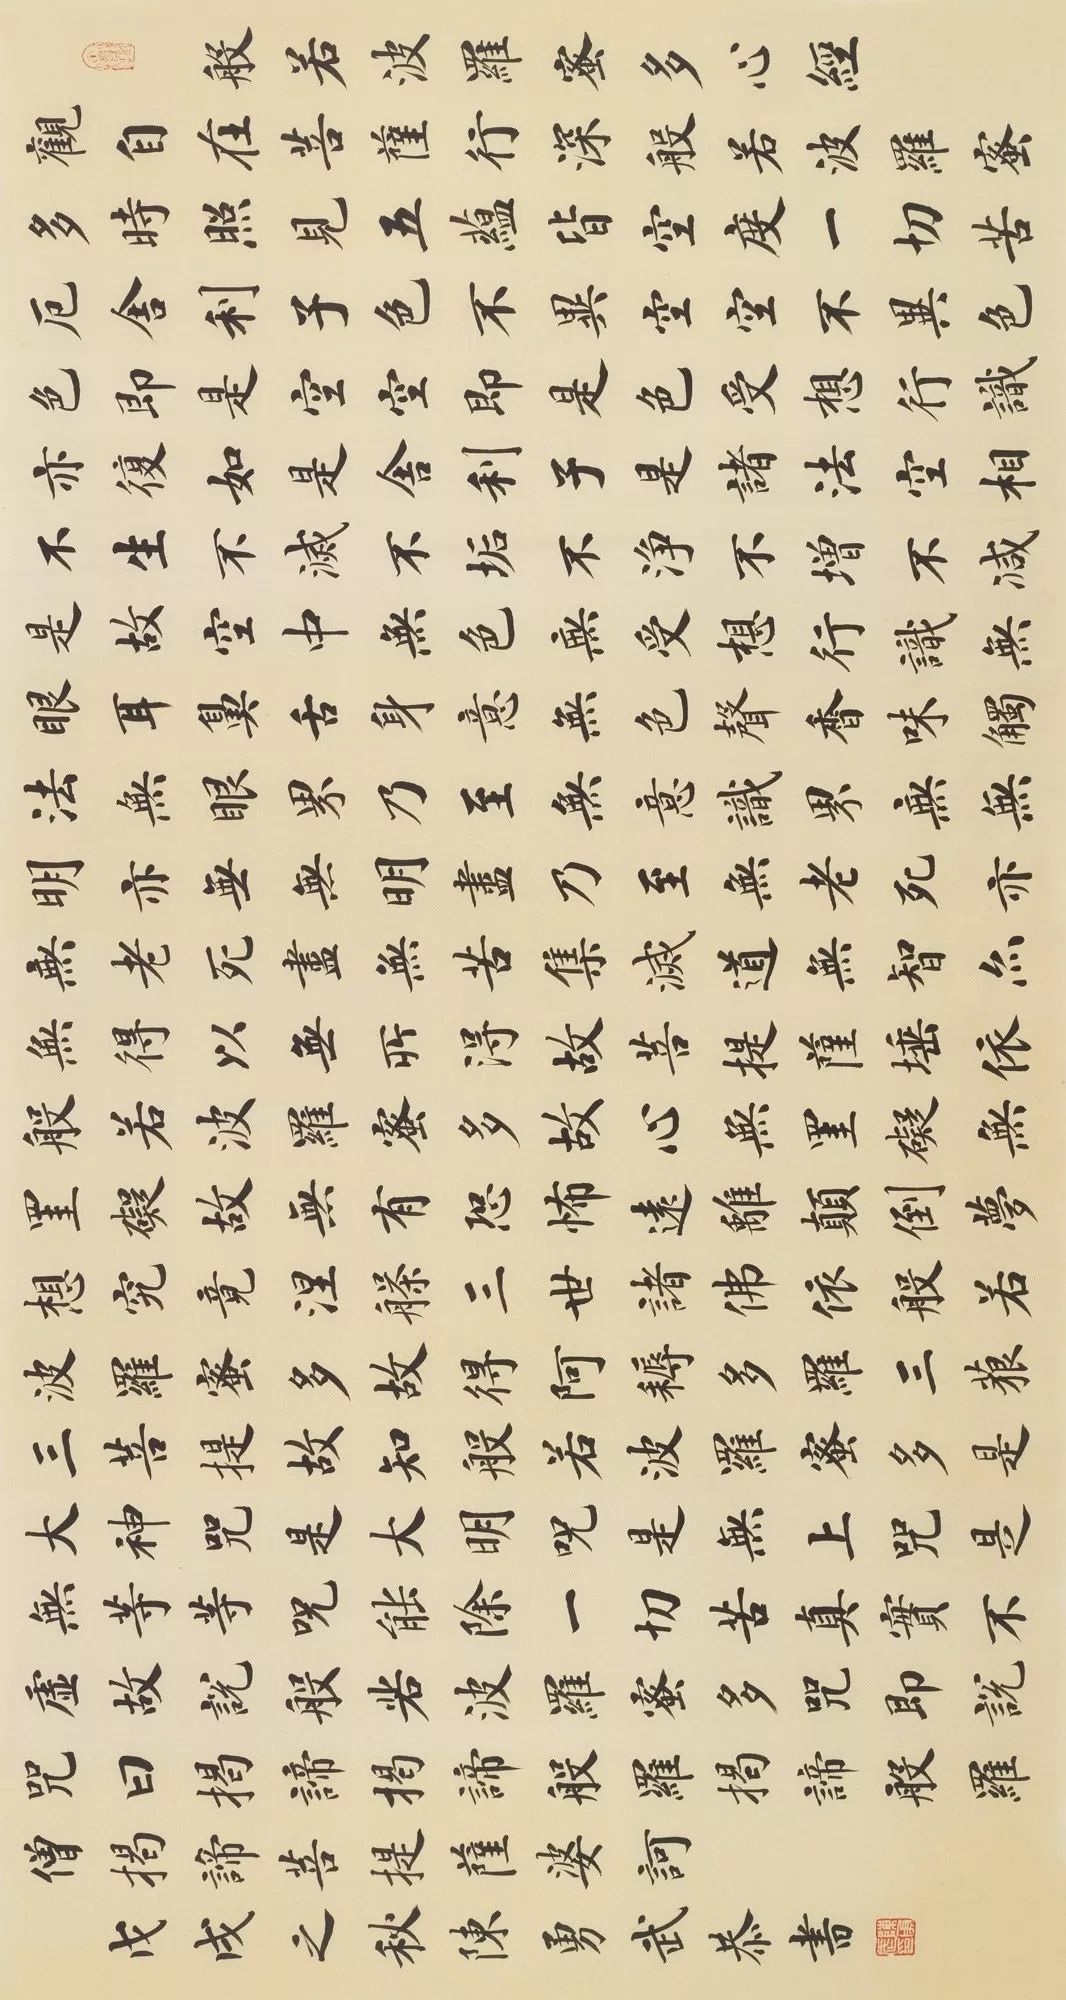 般若波羅蜜多心經
觀自在菩薩行深般若波羅蜜
多時照見五蘊皆空度一切苦
厄舍利子色不異空空不異色
色即是空空即是色受想行識
亦復如是舍利子是諸法空相
不生不滅不垢不淨不增不減
是故空中無色無受想行識無
眼耳鼻舌身意無色聲香味觸
法無眼界乃至無意識界無無
明亦無無明盡乃至無老死亦
無老死盡無苦集滅道無智亦
無得以無所得故菩提薩埵依
般若波羅蜜多故心無罣礙無
罣礙故無有恐怖遠離顛倒夢
想究竟涅槃三世諸佛依般若
波羅蜜多故得阿耨多羅三藐
三菩提故知般若波羅蜜多是
大神咒是大明咒是無上咒是
無等等咒能除一切苦真實不
虛故說般若波羅蜜多咒即說
咒曰揭諦揭諦般羅揭諦般羅
僧揭諦菩提薩婆訶
戊戌之秋陳勇武恭書